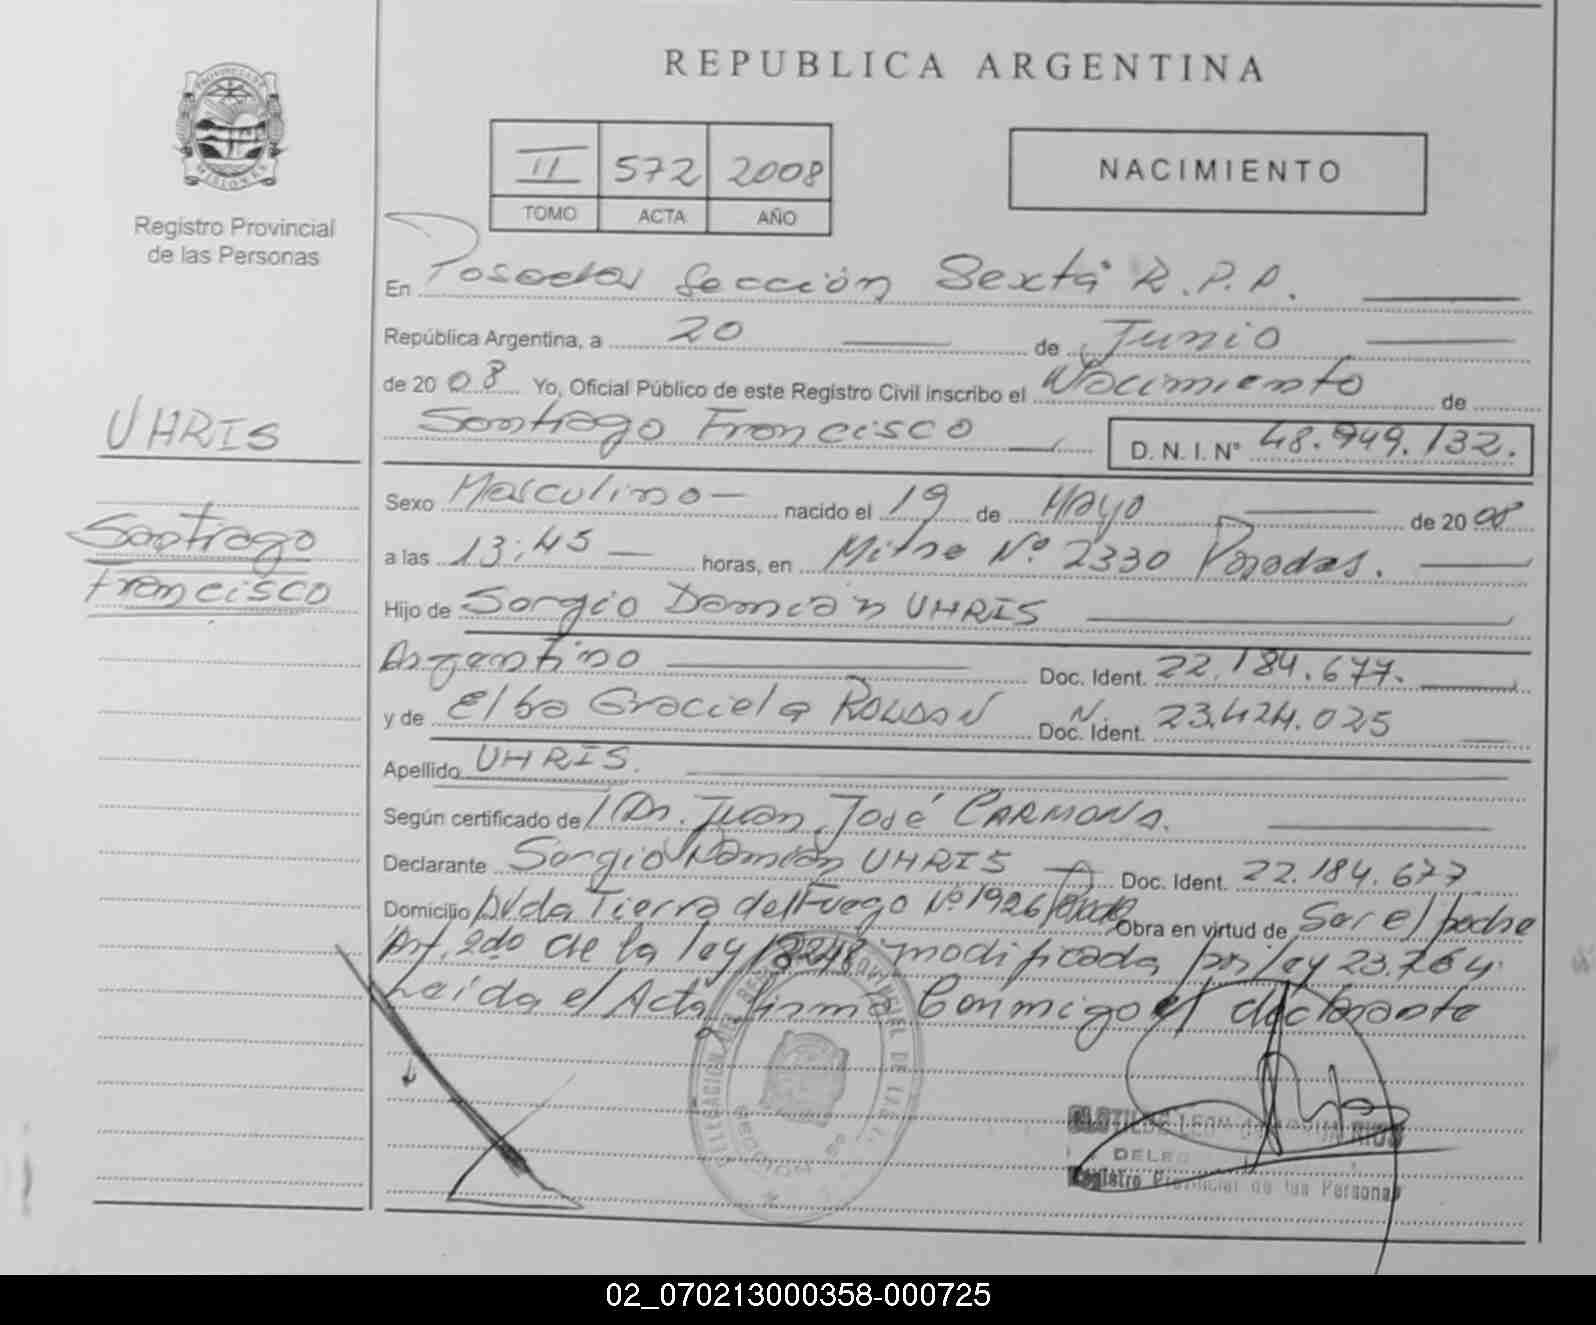 REPUBLICA ARGENTINA
PROVINCIA DE
MISIONES
Registro Provincial
de las Personas
II 572 2008
TOMO ACTA AÑO
NACIMIENTO
En Posadas Sección Sexta R.P.P.
República Argentina, a 20 de Junio
de 2008 Yo, Oficial Público de este Registro Civil inscribo el Nacimiento de
Santiago Francisco D. N. I. Nº 48.949.132.
UHRIS
Santiago
Francisco
Sexo Masculino nacido el 19 de Mayo de 2008
a las 13:45 horas, en Mitre Nº 2330 Posadas.
Hijo de Sergio Damián UHRIS
Argentino Doc. Ident. 22.184.677.
y de Elba Graciela Doc. Ident. 23.424.025
Apellido UHRIS.
Según certificado de Dr. Juan José CARMONA.
Declarante Sergio Damián UHRIS Doc. Ident. 22.184.677
Domicilio Avda Tierra del Fuego Nº 1926 Obra en virtud de Ser el padre
Art. 2do de la ley 18248 modificada por ley 23.264
Leída el Acta firma Conmigo el declarante
DELEGACION DEL
SECCION 6a
Registro Provincial de las Personas
02_070213000358-000725